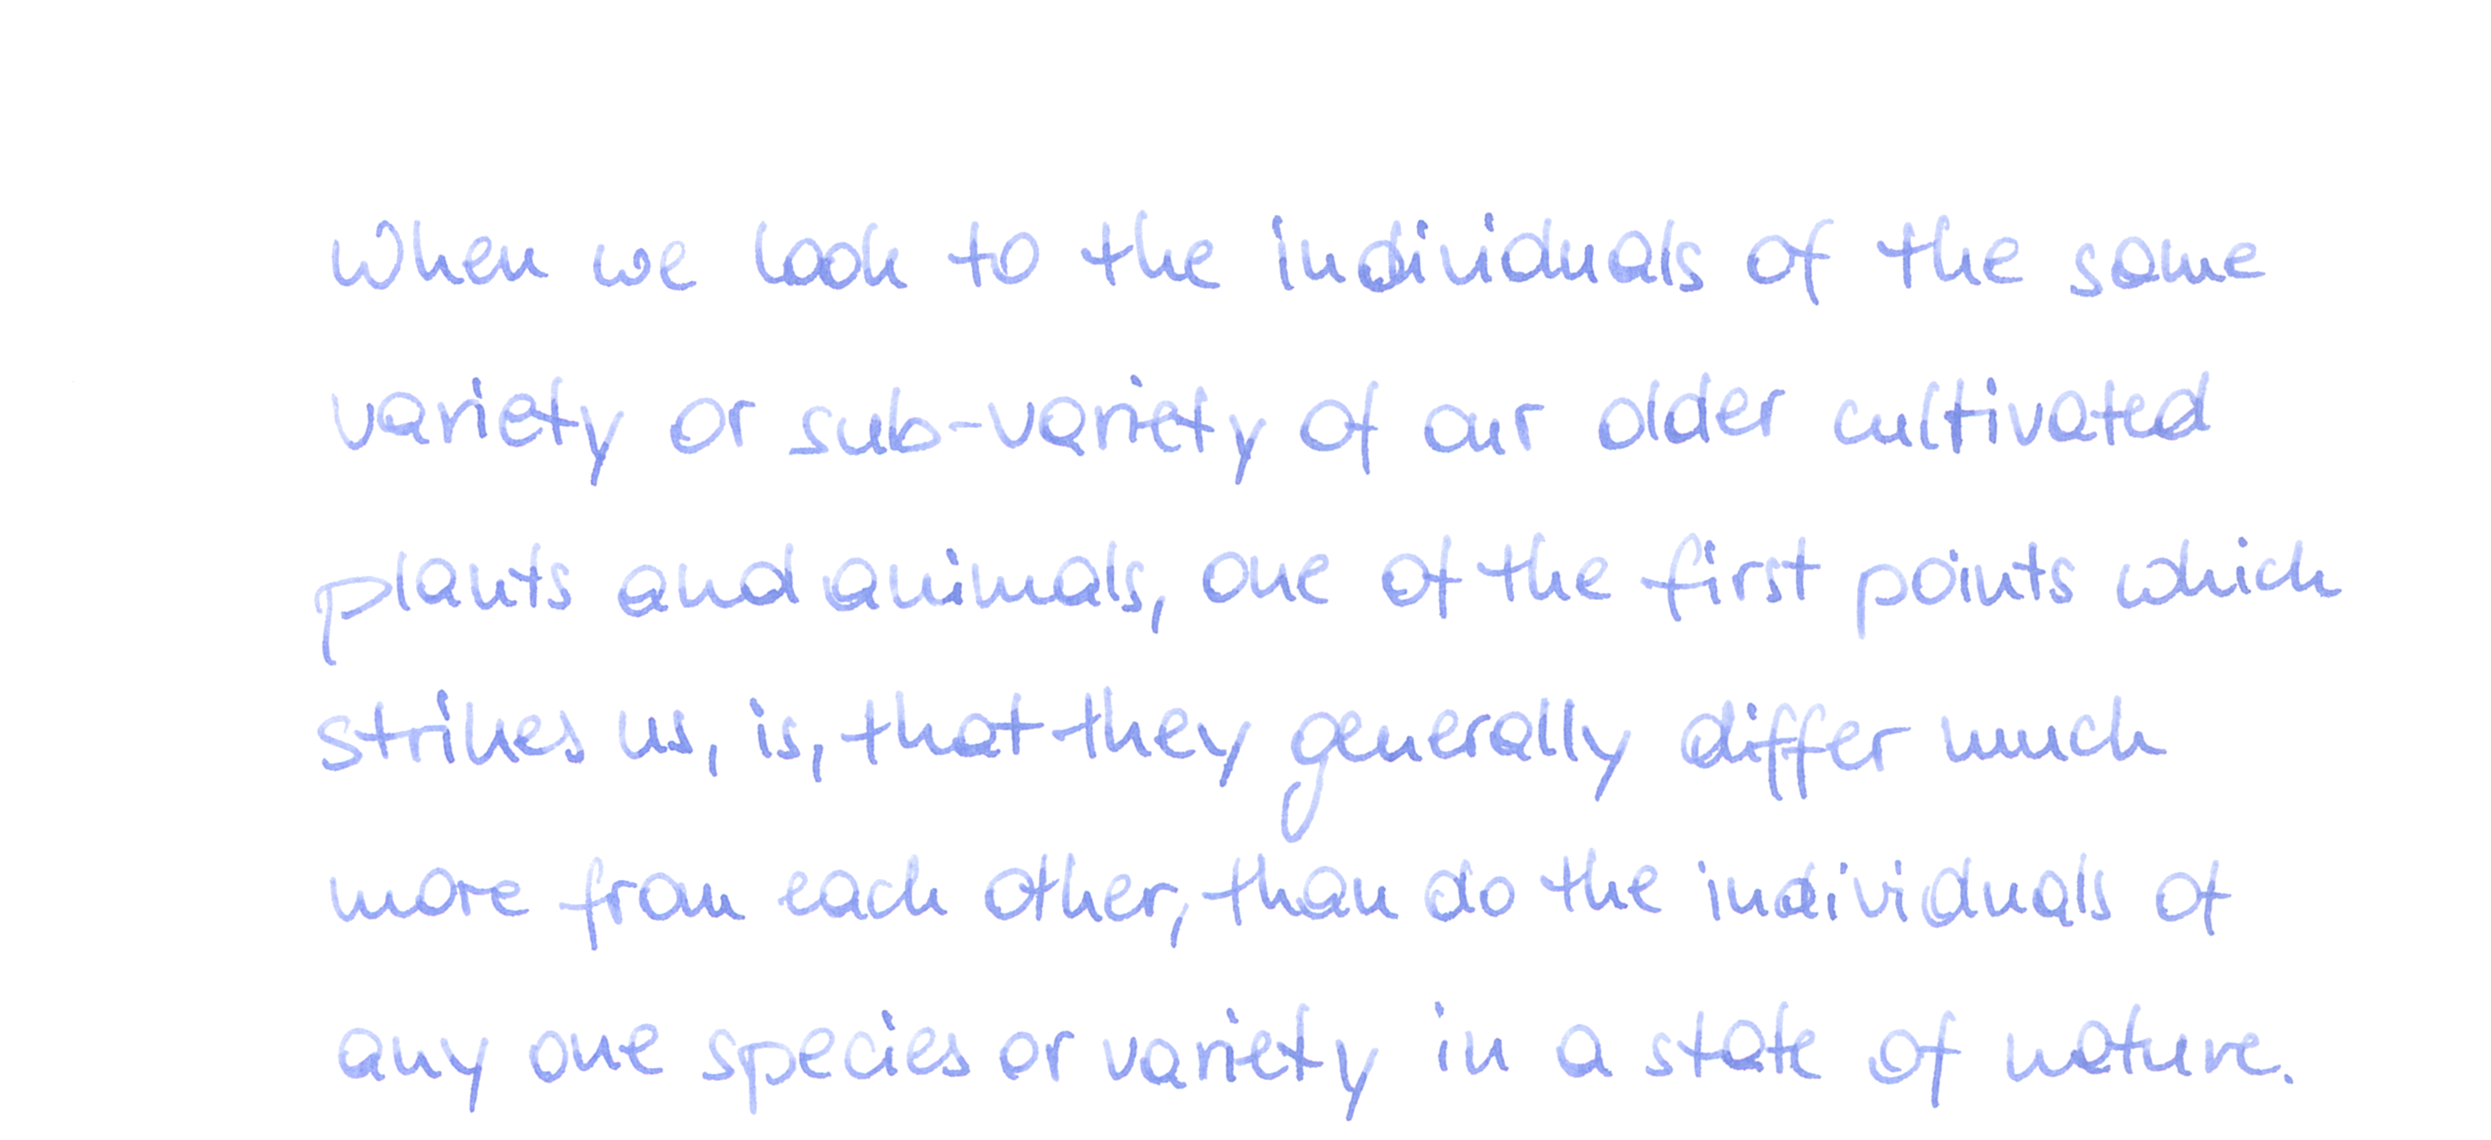 When we look to the individuals of the same
variety or sub-variety of our older cultivated
plants and animals, one of the first points which
strikes us, is, that they generally differ much
more from each other, than do the individuals of
any one species or variety in a state of nature.